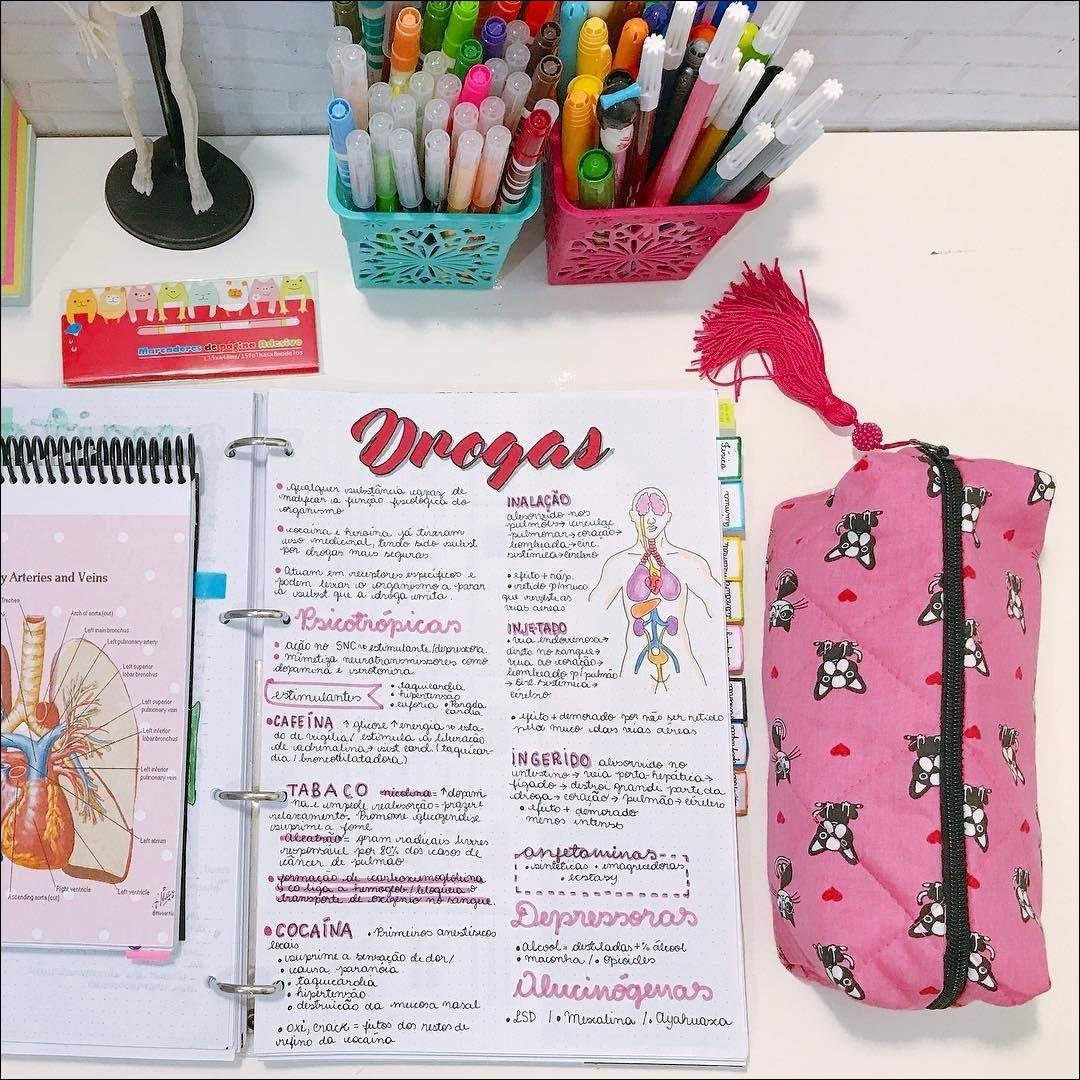 Marcadores de página Adesivo
L15x448mm/15folhasx8modelos
y Arteries and Veins
Trachea
Arch of aorta (cut)
Left main bronchus
Left pulmonary artery
Left superior
lobar bronchus
Left superior
pulmonary vein
Left inferior
lobar bronchus
Left inferior
pulmonary vein
Left atrium
Left ventricle
Right ventricle
Ascending aorta (cut)
Drogas
• qualquer substância capaz de
modificar a função fisiológica do
organismo
• cocaína e heroína já tiveram
uso medicinal, tendo sido subst
por drogas mais seguras.
• Atuam em receptores específicos e
podem levar o organismo a parar
a subst que a droga imita.
Psicotrópicas
• ação no SNC → estimulante/depressora
• mimetiza neurotransmissores como
dopamina e serotonina
estimulantes
• taquicardia
• hipertensão
• euforia
CAFEÍNA ↑ glicose ↑ energia → esta
do de vigília / estimula a liberação
de adrenalina → sist card (taquicar-
dia / broncodilatadora)
TABACO nicotina = ↑ dopami
na e impede reabsorção - prazer e
relaxamento. Promove glicogenólise
suprime a fome
Alcatrão = geram radicais livres
responsável por 80% dos casos de
câncer de pulmão
• formação de carboxiemoglobina
CO liga a hemoglob/bloqueia o
transporte de oxigênio no sangue
• COCAÍNA • Primeiros anestésicos
locais
• suprime a sensação de dor/
• causa paranóia
• taquicardia
• hipertensão
• destruição da mucosa nasal
• oxi, crack = feitos dos restos de
refino da cocaína
INALAÇÃO
absorvido nos
pulmões → circulaç
pulmonar → coração →
bombeada → circ.
sistêmica → cérebro
• efeito + ráp.
• retido p/ muco
que reveste as
vias aéreas
INJETADO
• via endovenosa →
direto no sangue →
veia ao coração →
bombeado p/ pulmão
→ circ sistêmica →
cérebro
• efeito + demorado por não ser retido
pelo muco das vias aéreas
INGERIDO absorvido no
intestino → veia porta hepática →
fígado → destroi grande parte da
droga → coração → pulmão → cérebro
• efeito + demorado
menos intenso
anfetaminas
• sintéticas • emagrecedoras
• ecstasy
Depressoras
• álcool = destiladas + % álcool
• maconha / • opioides
Alucinógenas
• LSD / • Mexalina / • Ayahuaxa
Física
Química